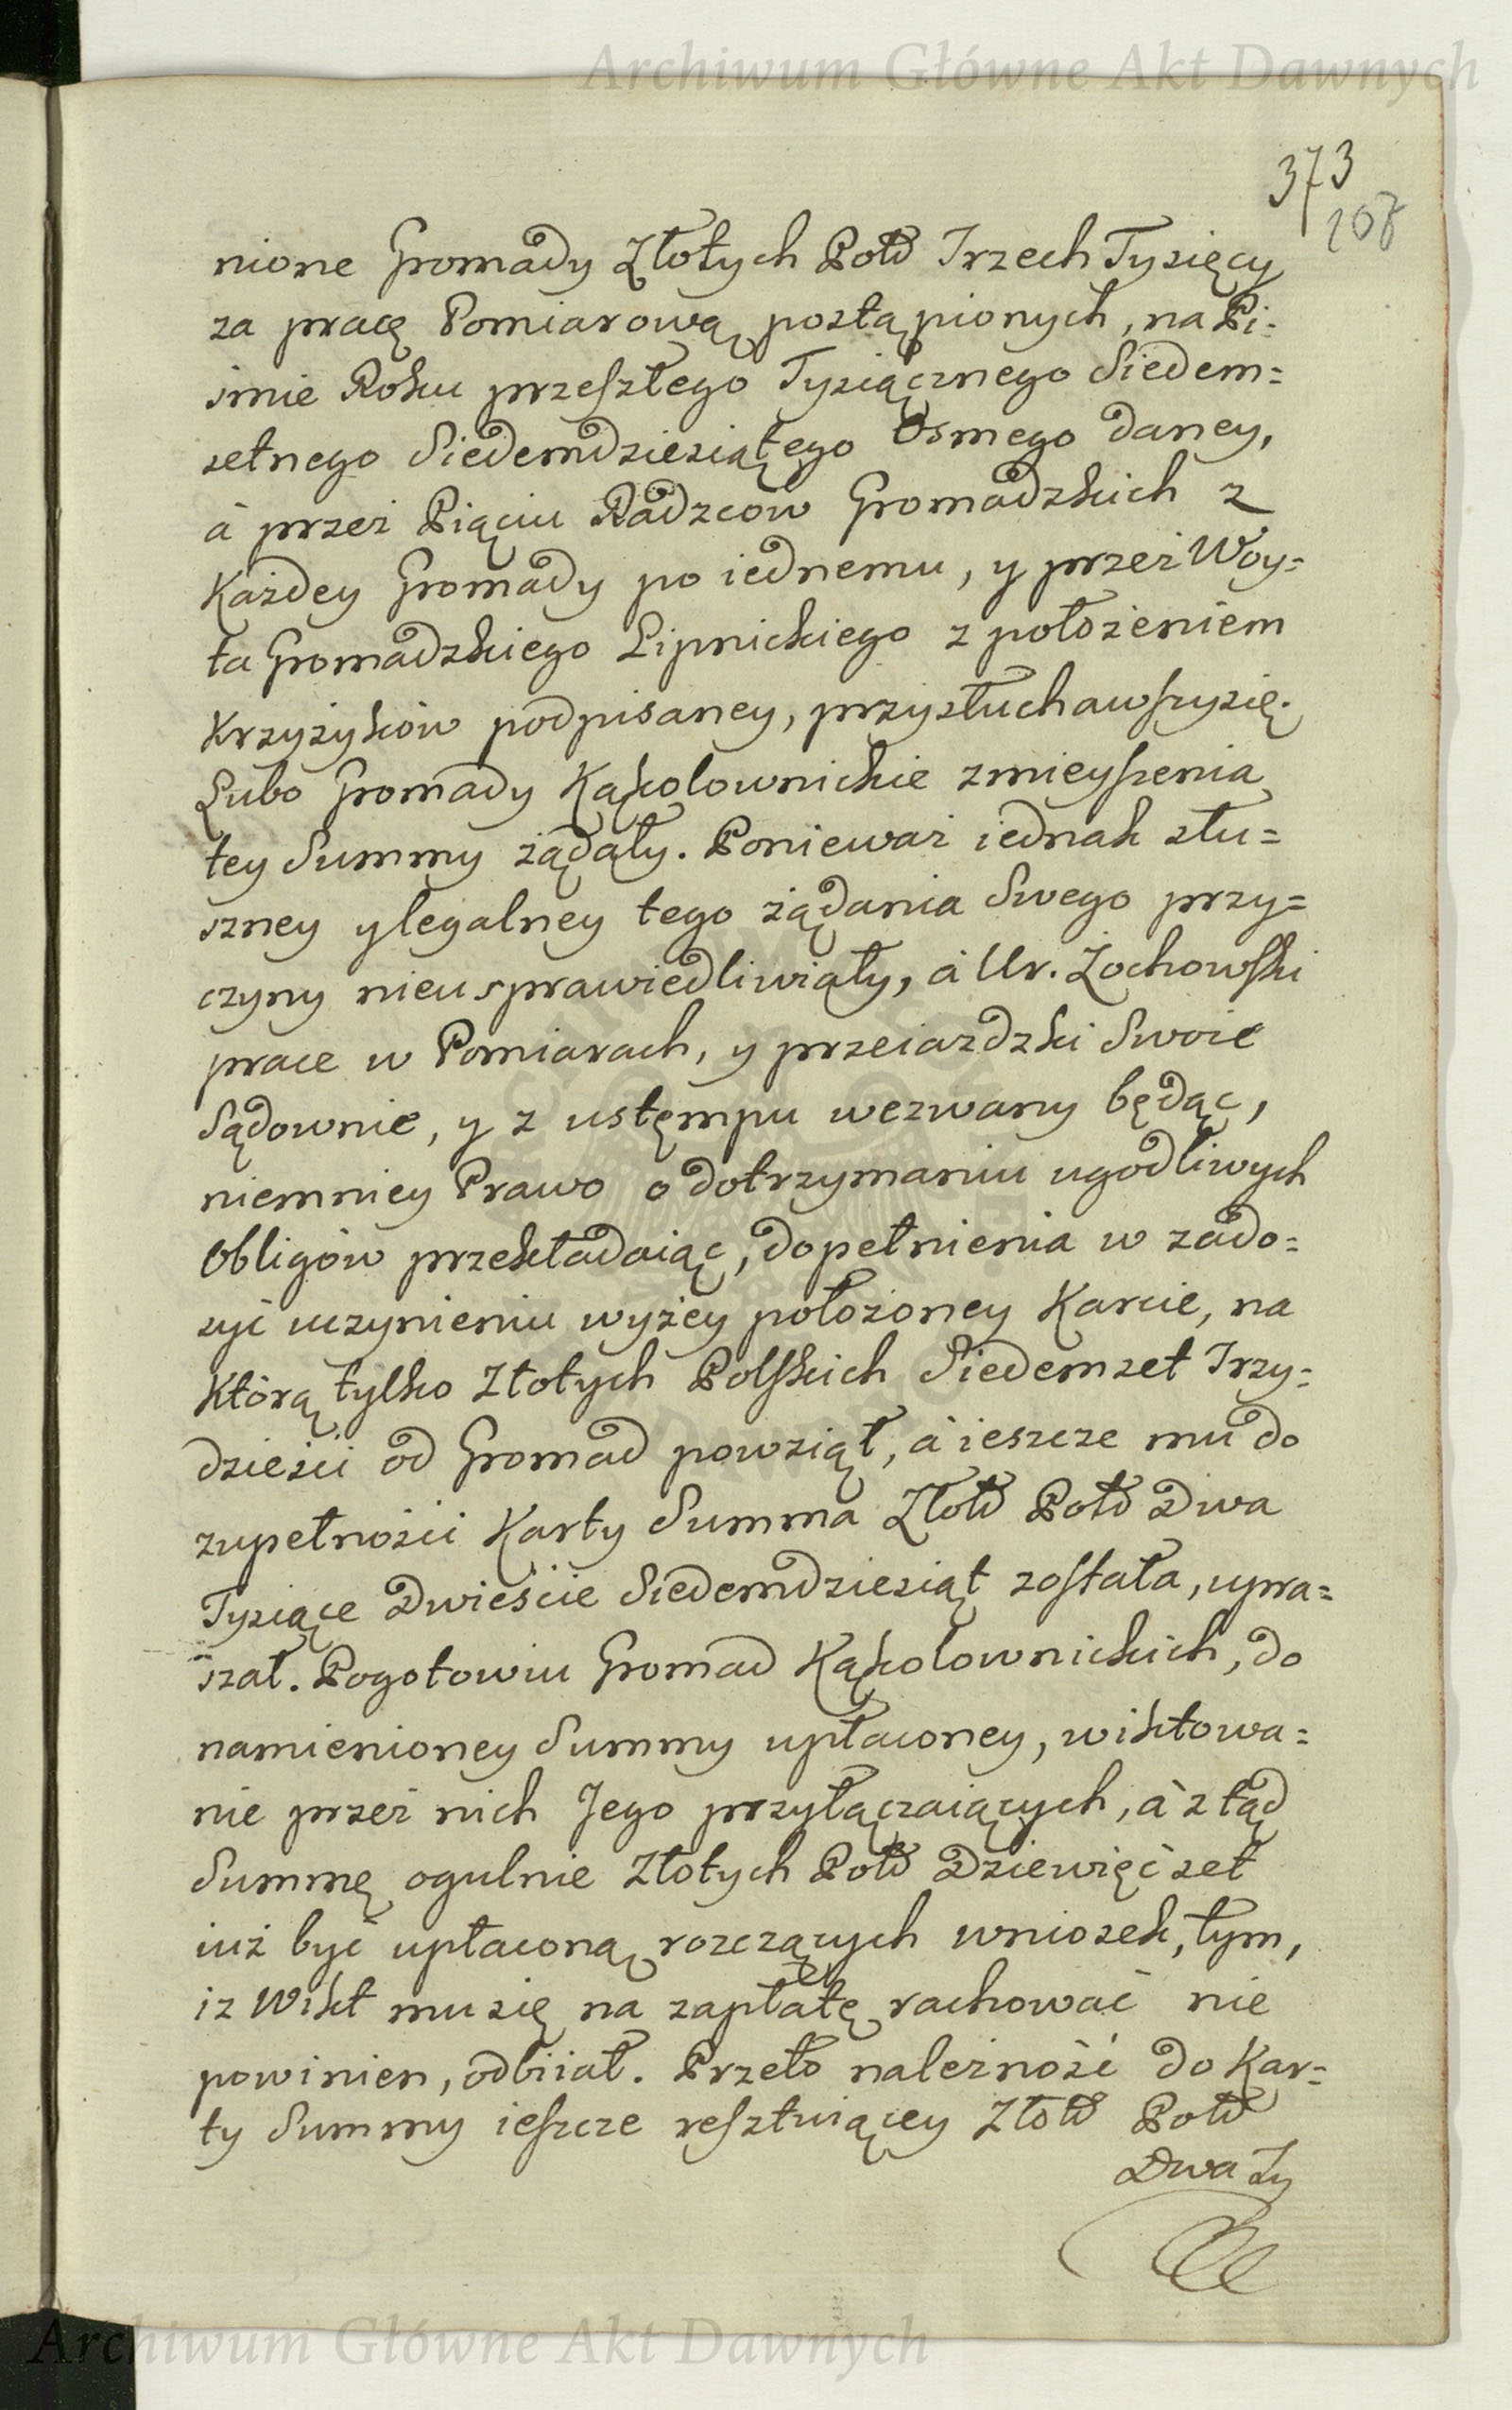 Archiwum Główne Akt Dawnych
373
107
nione Gromady Złotych Polł Trzech Tysięcy
za pracę Pomiarową postąpionych, na Pi=
smie Roku przeszłego Tysiącznego Siedem=
setnego Siedemdziesiątego Osmego daney,
á przez Pięciu Radzców Gromadzkich z
Każdey Gromady po iednemu, y przez Woy=
ta Gromadzkiego Lipnickiego z położeniem
Krzyżyków podpisaney, przysłuchawszysię.
Lubo Gromady Kąkolownickie zmieyszenia
tey Summy żądały. Ponieważ iednak słu=
szney y legalney tego żądania Swego przy=
czyny nieusprawiedliwiały, á Ur. Żochowski
prace w Pomiarach, y przeiazdzki Swoie
Sądownie, y z ustęmpu wezwany będąc,
niemniey Prawo o dotrzymaniu ugodliwych
Obligów przekładaiąc, dopełnienia w zado=
syć uczynieniu wyżey położoney Karcie, na
Którą tylko Złotych Polskich Siedemset Trzy=
dzieści od Gromad powziął, á ieszcze mu do
zupełności Karty Summa Złotł Polł Dwa
Tysiące Dwieście Siedemdziesiąt została, upra=
szał. Pogotowiu Gromad Kąkolownickich, do
namienioney Summy upłaconey, wiktowa=
nie przez nich Jego przyłączaiących, á ztąd
Summę ogulnie Złotych Polł Dziewięćset
iuż być upłaconą rozczących wniosek, tym,
iz Wikt mu się na zapłatę rachować nie
powinien, odbiiał. Przeto należność do Kar=
ty Summy ieszcze resztuiącey Złotł Polł
Dwa Ty
Archiwum Główne Akt Dawnych